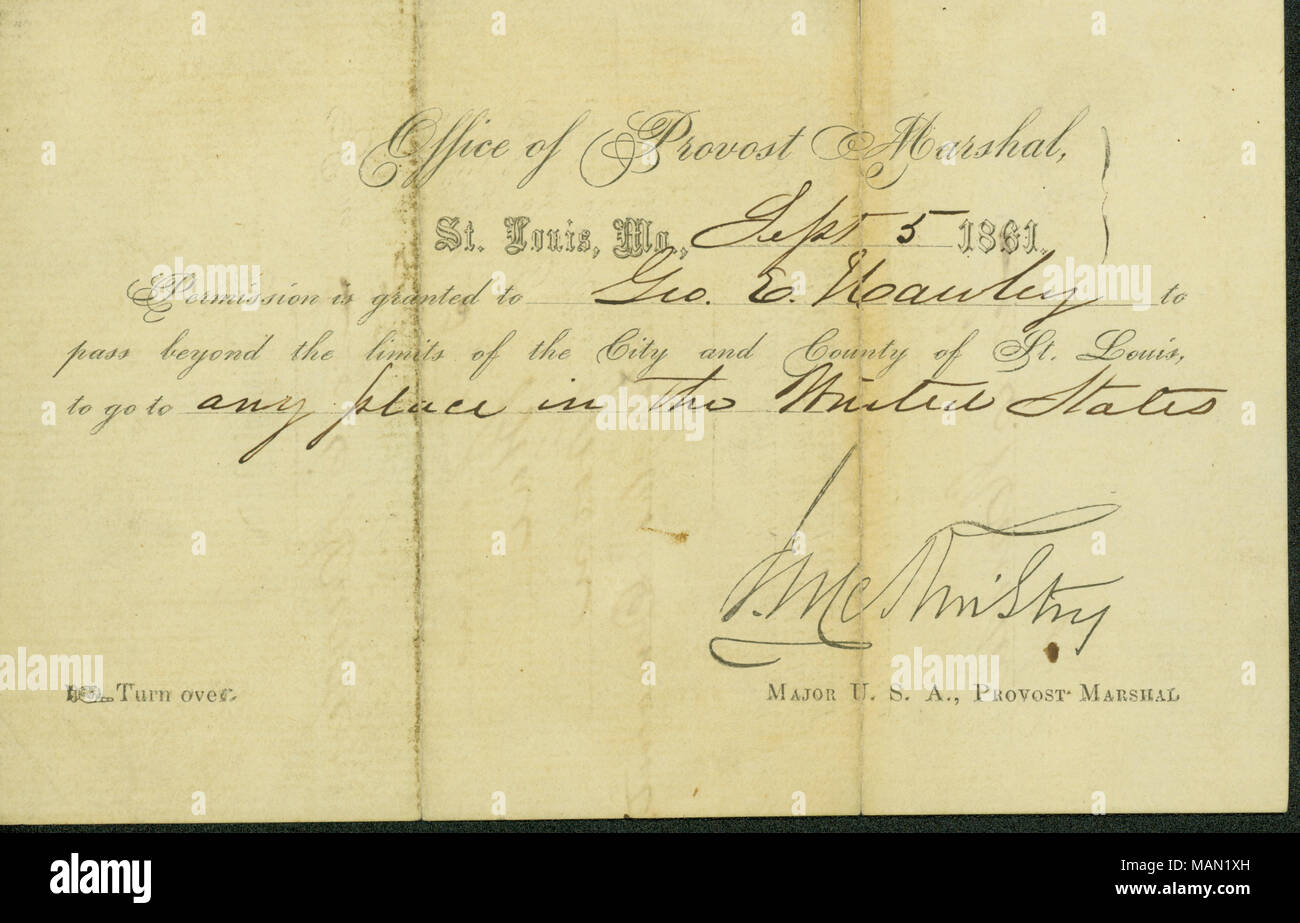 Office of Provost Marshal,
St. Louis, Mo., Sept 5 1861.
Permission is granted to Geo. E. Hawley to
pass beyond the limits of the City and County of St. Louis,
to go to any place in the United States
J. McKinstry
Turn over.
MAJOR U. S. A., PROVOST MARSHAL
alamy
Image ID: MAN1XH
www.alamy.com